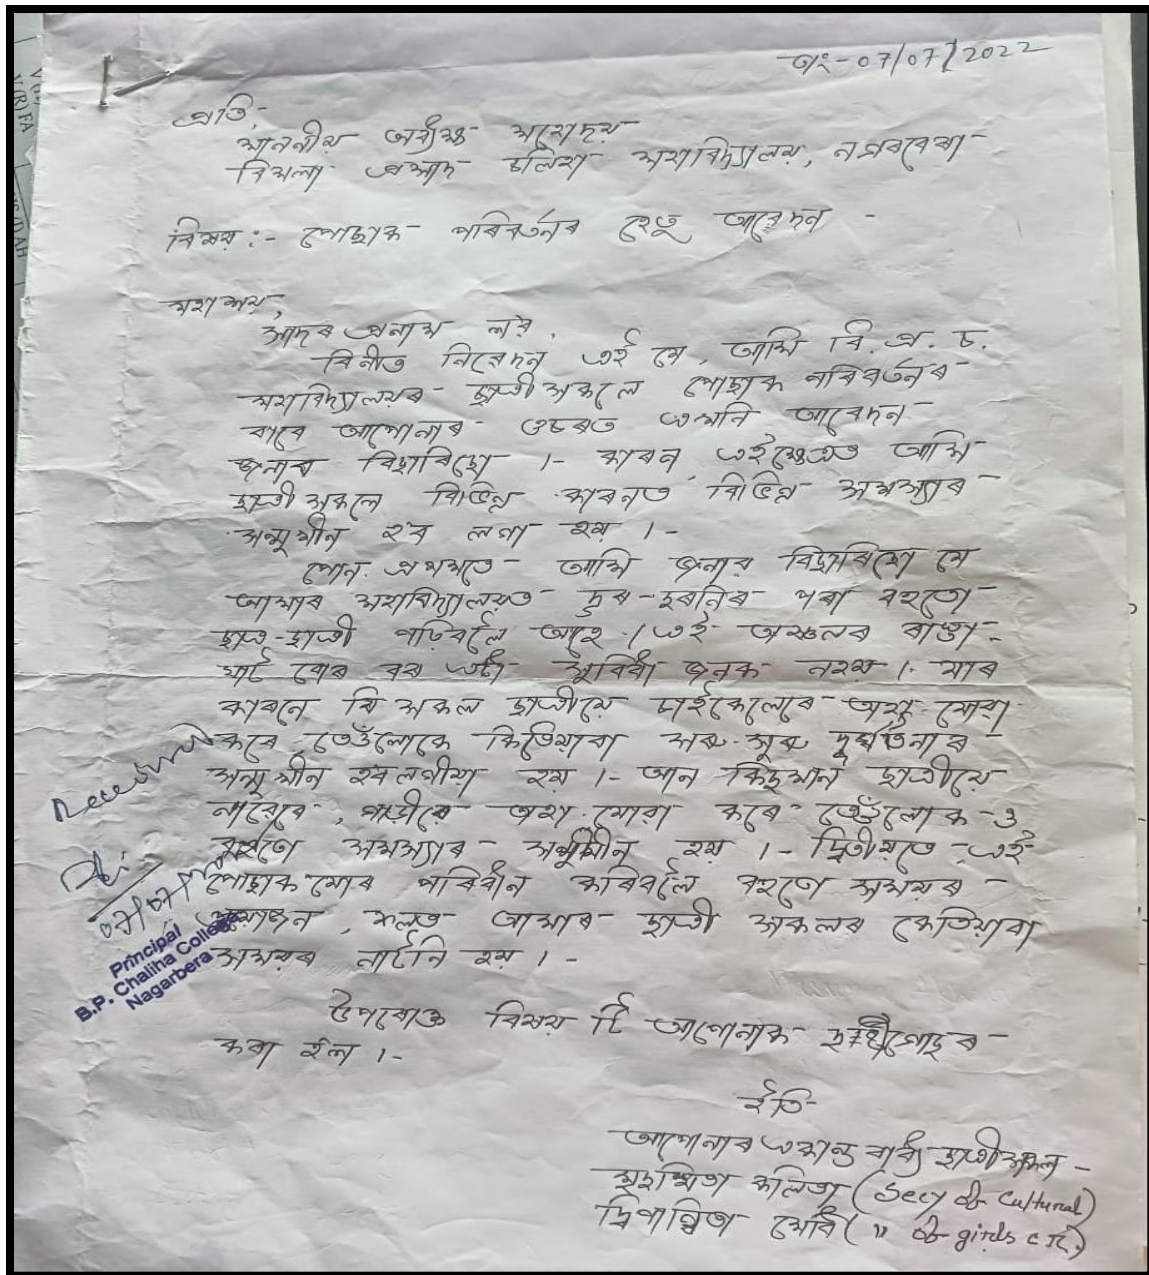 তাং-07/07/2022
প্ৰতি,
মাননীয় অধ্যক্ষ মহোদয়
বিমলা প্ৰসাদ চলিহা মহাবিদ্যালয়, নগৰবেৰা
বিষয় :- পোছাক পৰিবৰ্তনৰ হেতু আবেদন -
মহাশয়,
সাদৰ প্ৰনাম ল'ব,
বিনীত নিবেদন এই যে, আমি বি. প্ৰ. চ.
মহাবিদ্যালয়ৰ ছাত্ৰীসকলে পোছাক পৰিবৰ্তনৰ
বাবে আপোনাৰ ওচৰত এখনি আবেদন
জনাব বিছাৰিছো ।- কাৰন, এইক্ষেত্ৰত আমি
ছাত্ৰীসকলে বিভিন্ন কাৰনত বিভিন্ন সমস্যাৰ
সন্মুখীন হ'ব লগা হয় ।-
পোন প্ৰথমতে আমি জনাব বিছাৰিছো যে
আমাৰ মহাবিদ্যালয়ত দুৰ-দুৰনিৰ পৰা বহুতো
ছাত্ৰ-ছাত্ৰী পঢ়িবলৈ আহে । এই অঞ্চলৰ ৰাস্তা-
ঘাট বোৰ বৰ এটা সুবিধা জনক নহয় । যাৰ
কাৰনে যি সকল ছাত্ৰীয়ে চাইকেলেৰে অহা-যোৱা
কৰে তেওঁলোকে কিতিয়াবা সৰু-সুৰা দুৰ্ঘটনাৰ
সন্মুখীন হবলগীয়া হয় ।- আন কিছুমান ছাত্ৰীয়ে
নাৱেৰে, গাড়ীৰে অহা-যোৱা কৰে তেওঁলোক-ও
বহুতো সমস্যাৰ সন্মুখীন হয় ।- দ্বিতীয়তে এই
পোছাকযোৰ পৰিধান কৰিবলৈ বহুতো সময়ৰ
প্ৰয়োজন, ফলত আমাৰ ছাত্ৰী সকলৰ কেতিয়াবা
সময়ৰ নাটনি হয় ।-
উপৰোক্ত বিষয় টি আপোনাক
কৰা হ'ল ।-
ইতি
আপোনাৰ একান্ত বাধ্য ছাত্ৰীসকল -
কলিতা (Secy of Cultural)
দ্বিপান্বিতা মেধি ( " of girls c.R.)
Received
07/07/
Principal
B.P. Chaliha College
Nagarbera